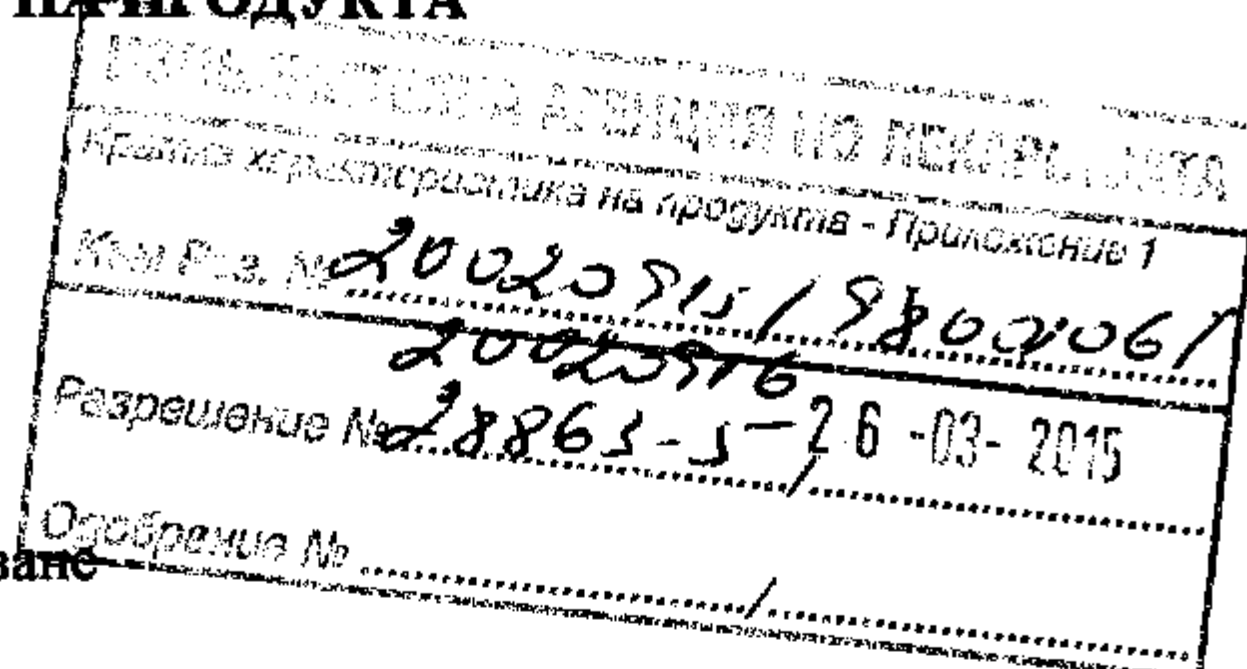 ПРОДУКТА
АГЕНЦИЯ ПО ЛЕКАРСТВАТА
Кратка характеристика на продукта - Приложение 1
Към Рег. № 20020915/9800206/
20020916
Разрешение № 28863-5 / 26 -03- 2015
Одобрение № /